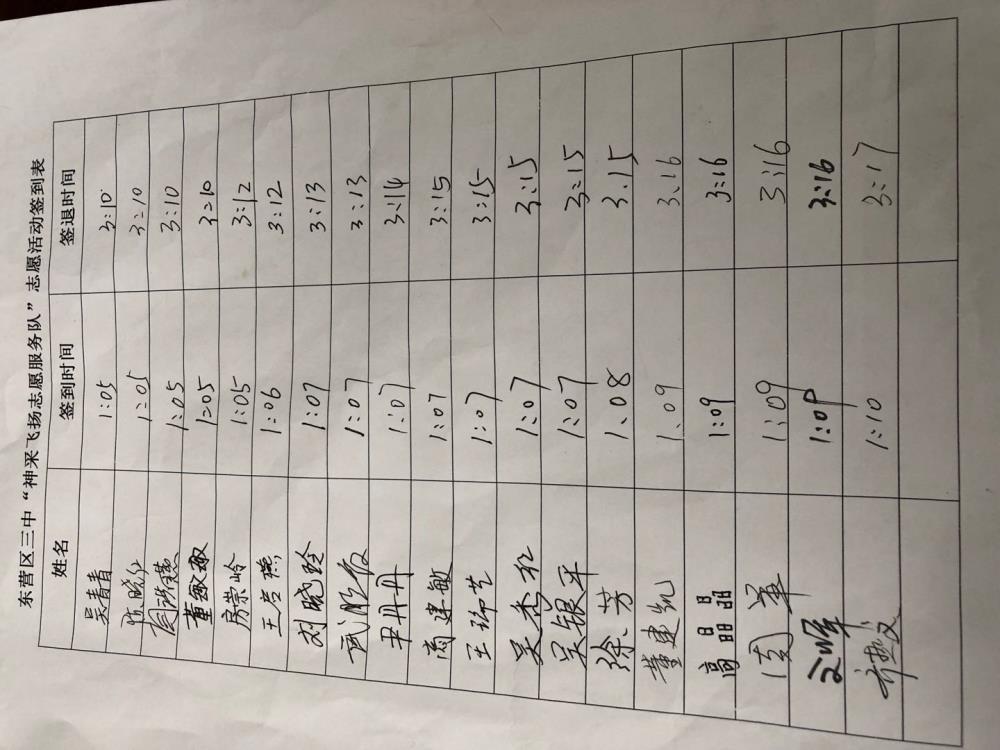 东营区三中“神采飞扬志愿服务队”志愿活动签到表
姓名 签到时间 签退时间
吴青青 1:05 3:10
陈晓红 1:05 3:10
1:05 3:10
董敏敏 1:05 3:10
房崇岭 1:05 3:12
王岩燕 1:06 3:12
刘晓玲 1:07 3:13
武 1:07 3:13
尹丹丹 1:07 3:14
商建敏 1:07 3:15
王瑞芝 1:07 3:15
吴秀红 1:07 3:15
吴银平 1:07 3:15
徐芳 1:08 3.15
董建凯 1.09 3.16
高晶晶 1:09 3:16
1:09 3:16
1:09 3:16
1:10 3:17